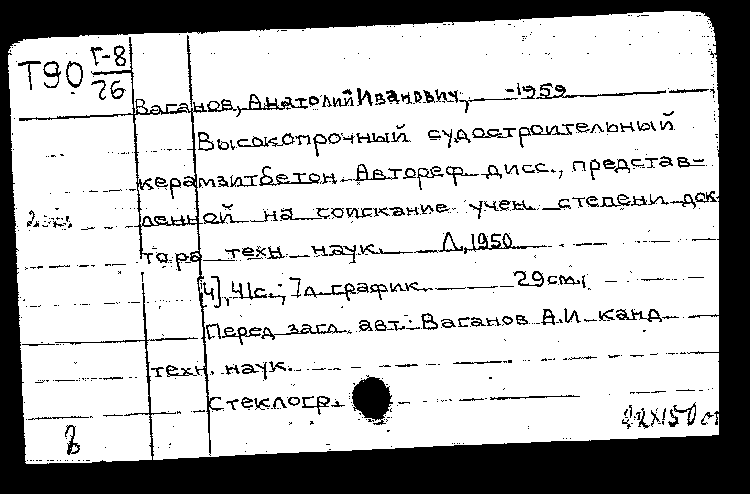 Т90 Г-8
26
Ваганов, Анатолий Иванович, -1959
Высокопрочный судостроительный
керамзитбетон. Автореф. дисс., представ-
ленной на соискание учен. степени док-
тора техн. наук. Л., 1950
[4], 41с.; 7л. график. 29см.;
Перед загл. авт.: Ваганов А.И. канд.
техн. наук.
Стеклогр.